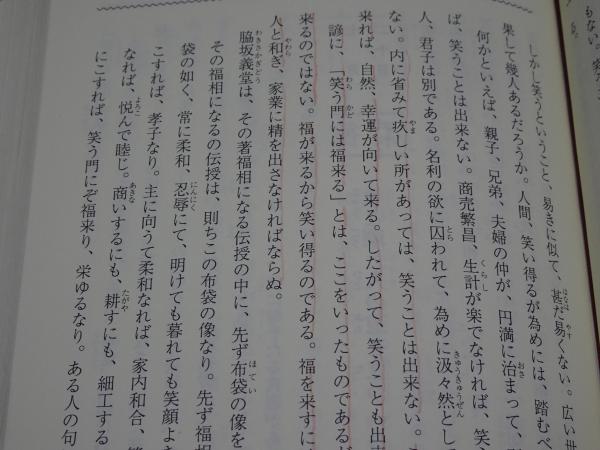 もない。笑う
しかし笑うということ、易きに似て、甚だ易くない。広い世
果して幾人あるだろうか。人間、笑い得るが為めには、踏むべ
何かといえば、親子、兄弟、夫婦の仲が、円満に治まって、
ば、笑うことは出来ない。商売繁昌、生計が楽でなければ、笑
人、君子は別である。名利の欲に囚われて、為めに汲々然とし
ない。内に省みて疚しい所があっては、笑うことは出来ない。
来れば、自然、幸運が向いて来る。したがって、笑うことも出
諺に、「笑う門には福来る」とは、ここをいったものであるが
来るのではない。福が来るから笑い得るのである。福を来すに
人と和ぎ、家業に精を出さなければならぬ。
脇坂義堂は、その著福相になる伝授の中に、先ず布袋の像を
その福相になるの伝授は、則ちこの布袋の像なり。先ず福相
袋の如く、常に柔和、忍辱にて、明けても暮れても笑顔よき
こすれば、孝子なり。主に向うて柔和なれば、家内和合、
なれば、悦んで睦じ。商いするにも、耕すにも、細工する
にこすれば、笑う門にぞ福来り、栄ゆるなり。ある人の句